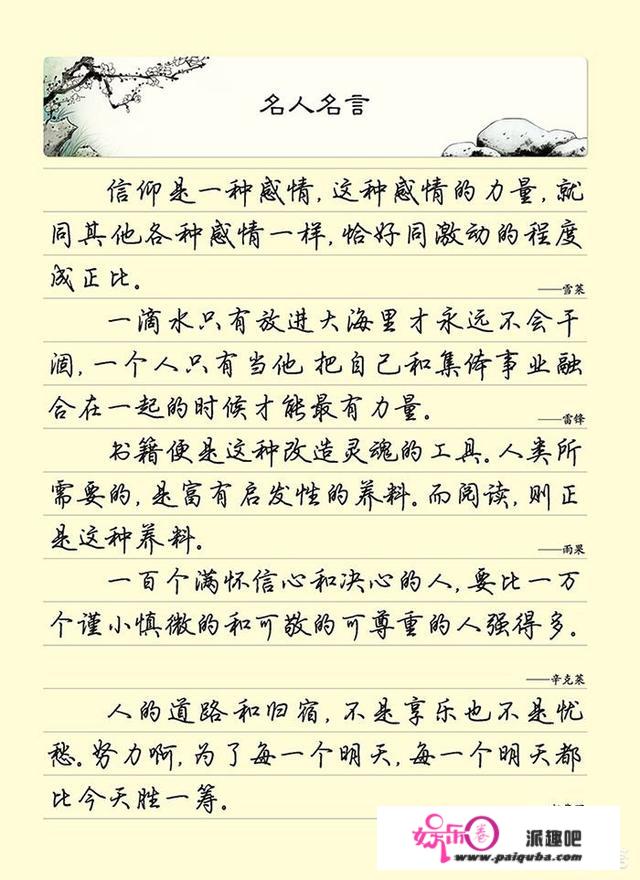 名人名言
信仰是一种感情,这种感情的力量,就
同其他各种感情一样,恰好同激动的程度
成正比。
——雪莱
一滴水只有放进大海里才永远不会干
涸,一个人只有当他把自己和集体事业融
合在一起的时候才能最有力量。
——雷锋
书籍便是这种改造灵魂的工具。人类所
需要的,是富有启发性的养料。而阅读,则正
是这种养料。
——雨果
一百个满怀信心和决心的人,要比一万
个谨小慎微的和可敬的可尊重的人强得多。
——辛克莱
人的道路和归宿,不是享乐也不是忧
愁。努力啊,为了每一个明天,每一个明天都
比今天胜一筹。
娱乐圈 派趣吧
www.paiquba.com